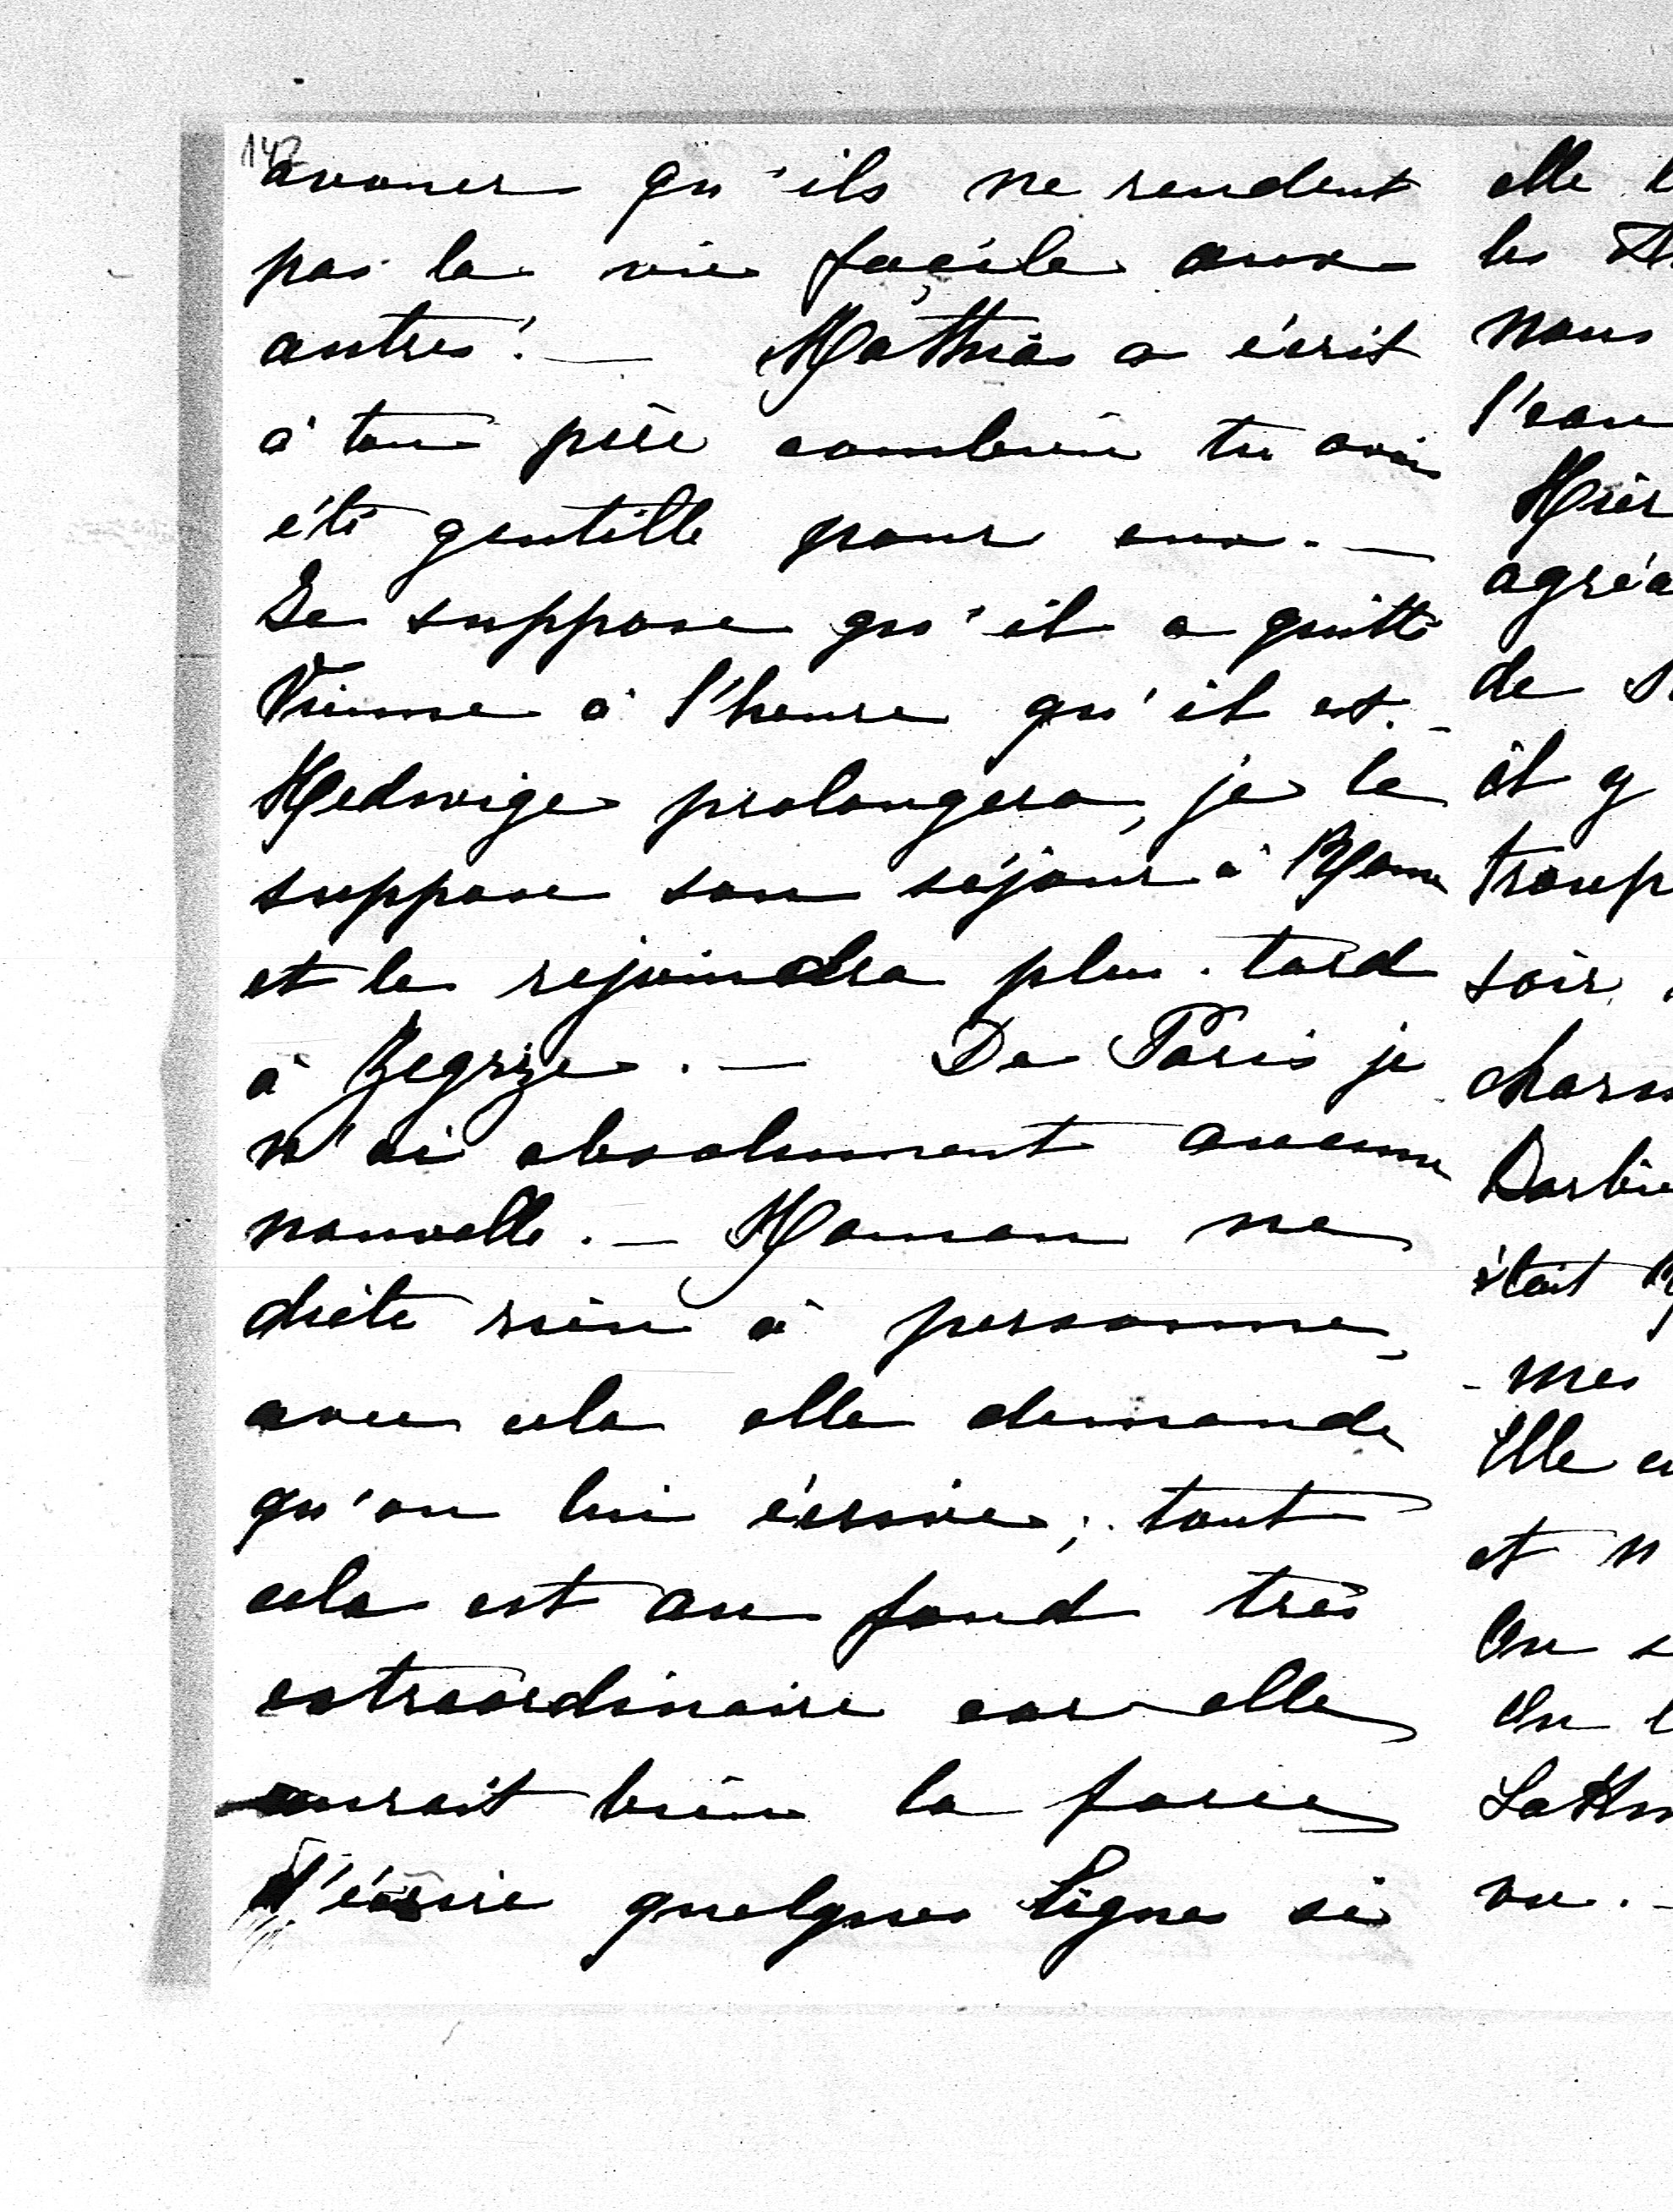 147
avouer qu'ils ne rendent
pas la vie façile aux
autres! —  Mathias a écrit
à ton père combien tu avais
été gentille pour eux. —
Je suppose qu'il a quitté
Vienne à l'heure qu'il est. —
Hedwige prolongera, je le
suppose son séjour à Rome
et le rejoindra plus tard
à Zegrze. — De Paris je
n'ai absolument aucune
nouvelle. — Maman ne
dicte rien à personne,
avec cela elle demande
qu'on lui écrive; tout
cela est au fond très
extraordinaire car elle
aurait bien la force
d'écrire quelques lignes si
elle
les
nous
l'eau
Hier
agréa
de
il y
troup
soir
charm
Barbie
était
mes
Elle
et n
On
On
vu. —